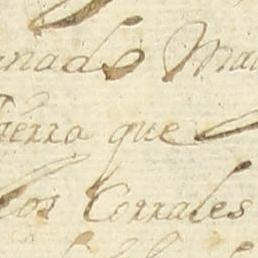 nado Ma
tierra que
los Corrales